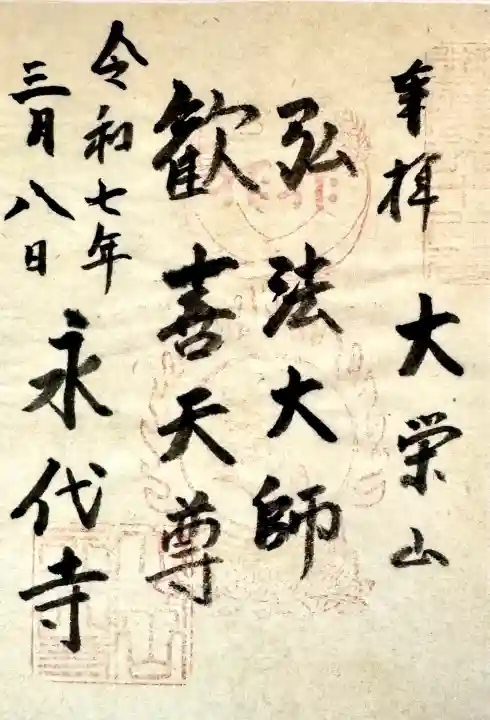 奉拝 大栄山
弘法大師
歓喜天尊
令和七年
三月八日
永代寺